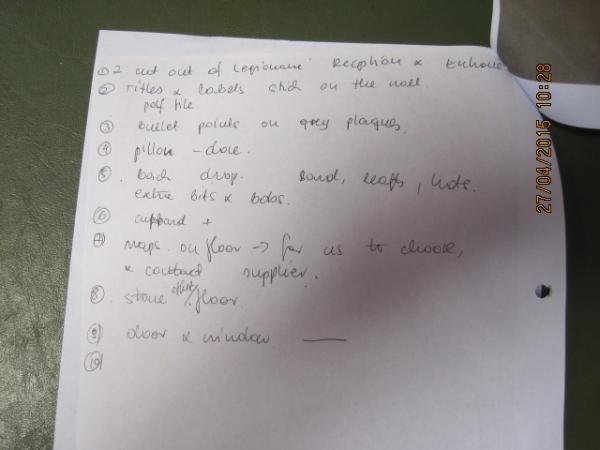 ① 2 cut out of Legionaire Reception &
② Titles & Labels stick on the wall.
pdf file
③ Bullet points on grey plaques,
④ pillow - done.
⑤. Back drop. Sand, huts.
extra bits & bobs.
⑥ cupboard +
⑦ maps. on floor -> for us to choose,
& contact supplier.
⑧. stone effect / floor.
⑨ door & window. —
⑩
27/04/2015 10:28